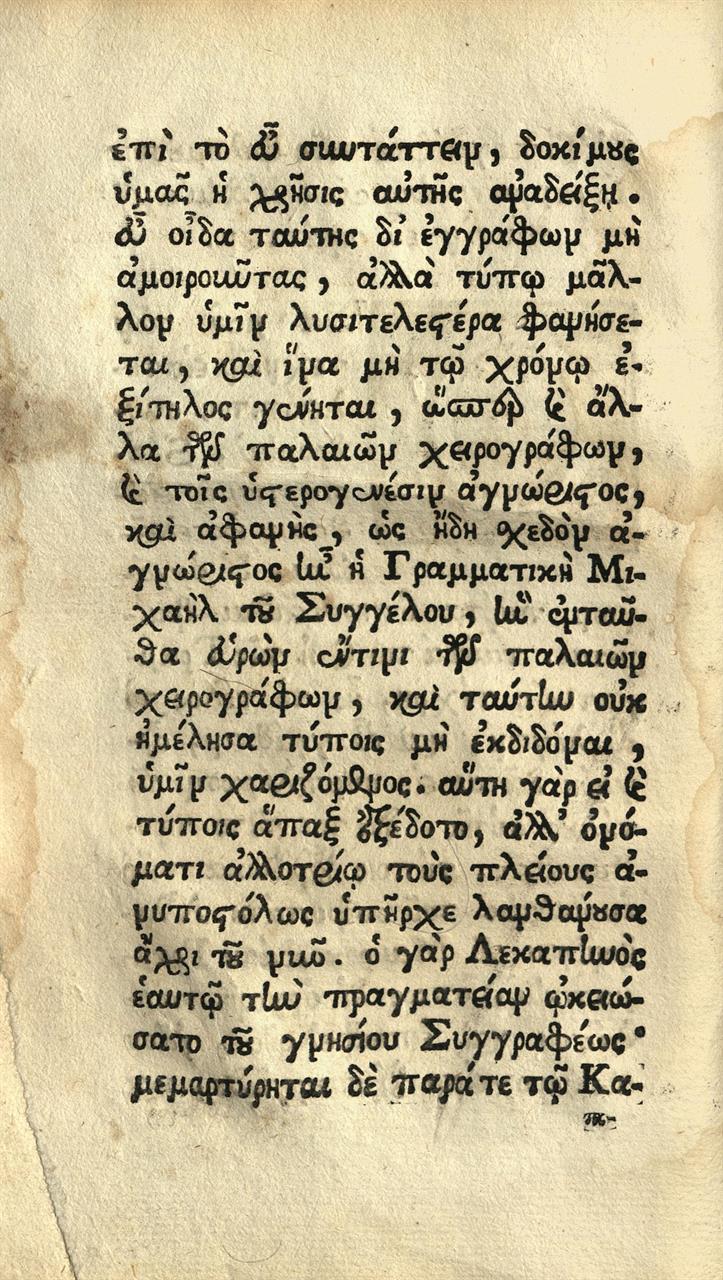 ἐπὶ τὸ εὖ συντάττειν, δοκίμους
ὑμᾶς ἡ χρῆσις αὐτῆς ἀναδείξῃ.
εὖ οἶδα ταύτης δι' ἐγγράφων μὴ
ἀμοιροῦντας, ἀλλὰ τύπῳ μᾶλ-
λον ὑμῖν λυσιτελεστέρα φανήσε-
ται, καὶ ἵνα μὴ τῷ χρόνῳ ἐ-
ξίτηλος γένηται, ὥσπερ καὶ ἄλ-
λα τῶν παλαιῶν χειρογράφων,
καὶ τοῖς ὑστερογενέσιν ἀγνώριστος,
καὶ ἀφανὴς, ὡς ἤδη σχεδὸν ἀ-
γνώριστος ἦν ἡ Γραμματικὴ Μι-
χαὴλ τοῦ Συγγέλου, ἣν ἐνταῦ-
θα εὑρὼν ἔν τινι τῶν παλαιῶν
χειρογράφων, καὶ ταύτην οὐκ
ἠμέλησα τύποις μὴ ἐκδιδόναι,
ὑμῖν χαριζόμενος. αὕτη γὰρ εἰ καὶ
τύποις ἅπαξ ἐξέδοτο, ἀλλ' ὀνό-
ματι ἀλλοτρίῳ τοὺς πλείους ἀ-
νυποστόλως ὑπῆρχε λανθάνουσα
ἄχρι τοῦ νῦν. ὁ γὰρ Λεκαπηνὸς
ἑαυτῷ τὴν πραγματείαν ᾠκειώ-
σατο τοῦ γνησίου Συγγραφέως·
μεμαρτύρηται δὲ παρά τε τῷ Κα-
τα-